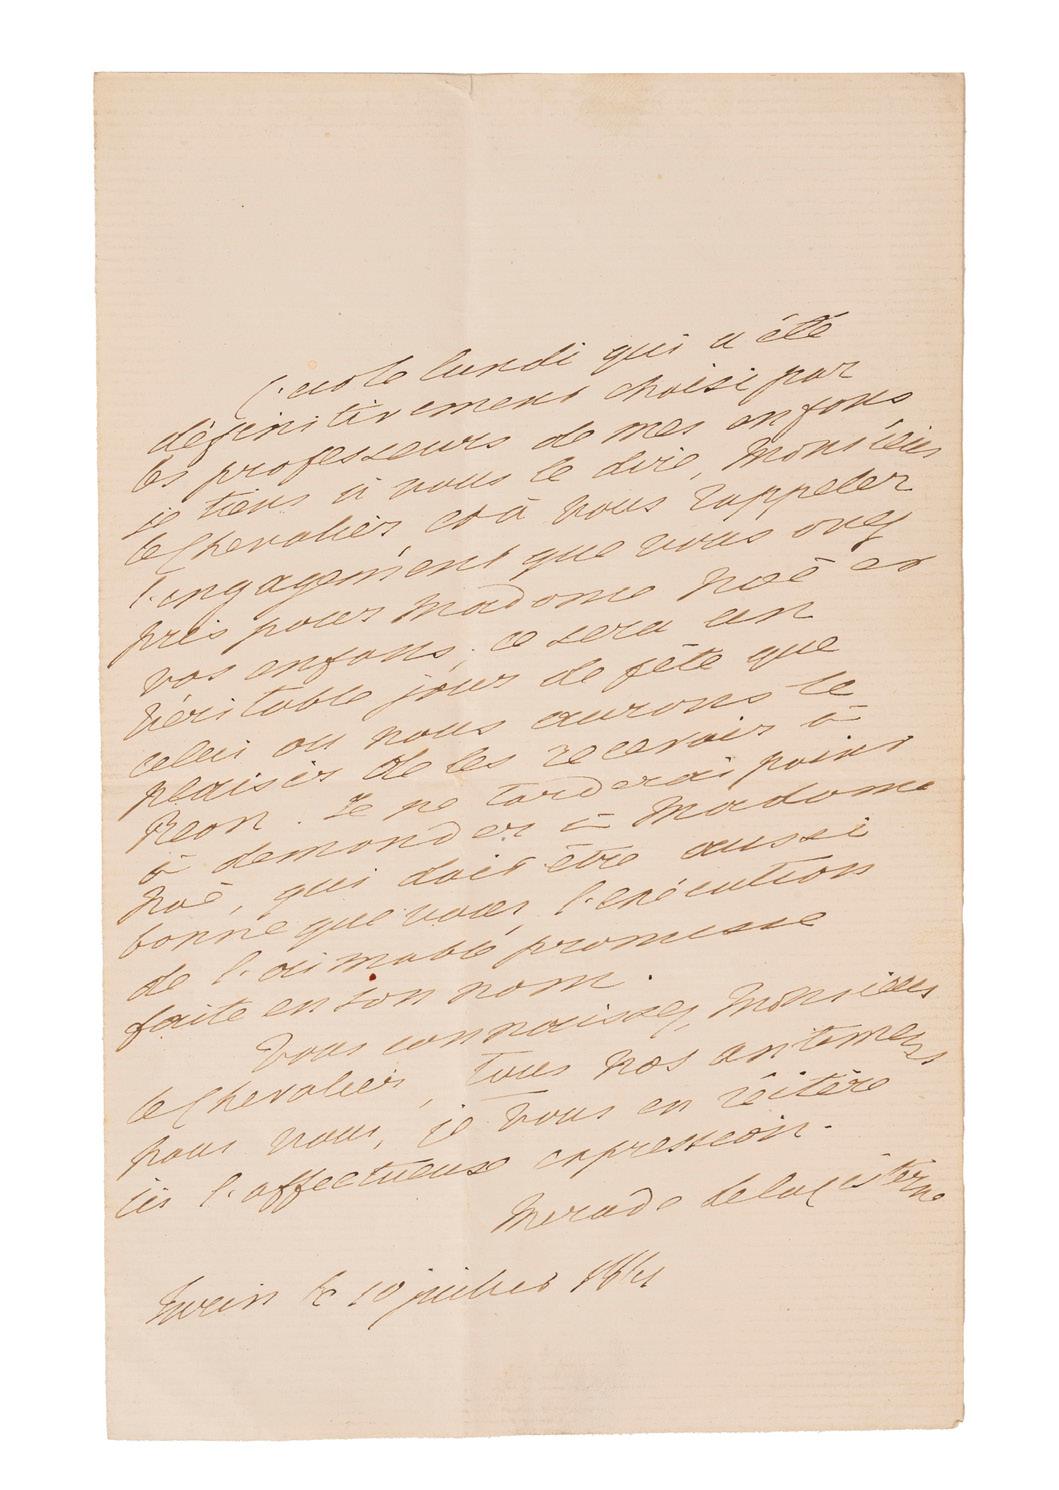 C'est le lundi qui a été
définitivement choisi par
les professeurs de mes enfans
je tiens à vous le dire, Monsieur
le Chevalier et à vous rappeler
l'engagement que vous avez
pris pour Madame Noë et
vos enfans; ce sera un
véritable jour de fête que
celui ou nous aurons le
plaisir de les recevoir à
Reon. Je ne tarderai point
à demander à Madame
Noë, qui doit être aussi
bonne que vous, l'exécution
de l'aimable promesse
faite en son nom.
Vous connaissez, Monsieur
le Chevalier, tous nos
pour vous, je vous en réitère
ici l'affectueuse expression.
Merode de la Cisterne
Turin le 10 juillet